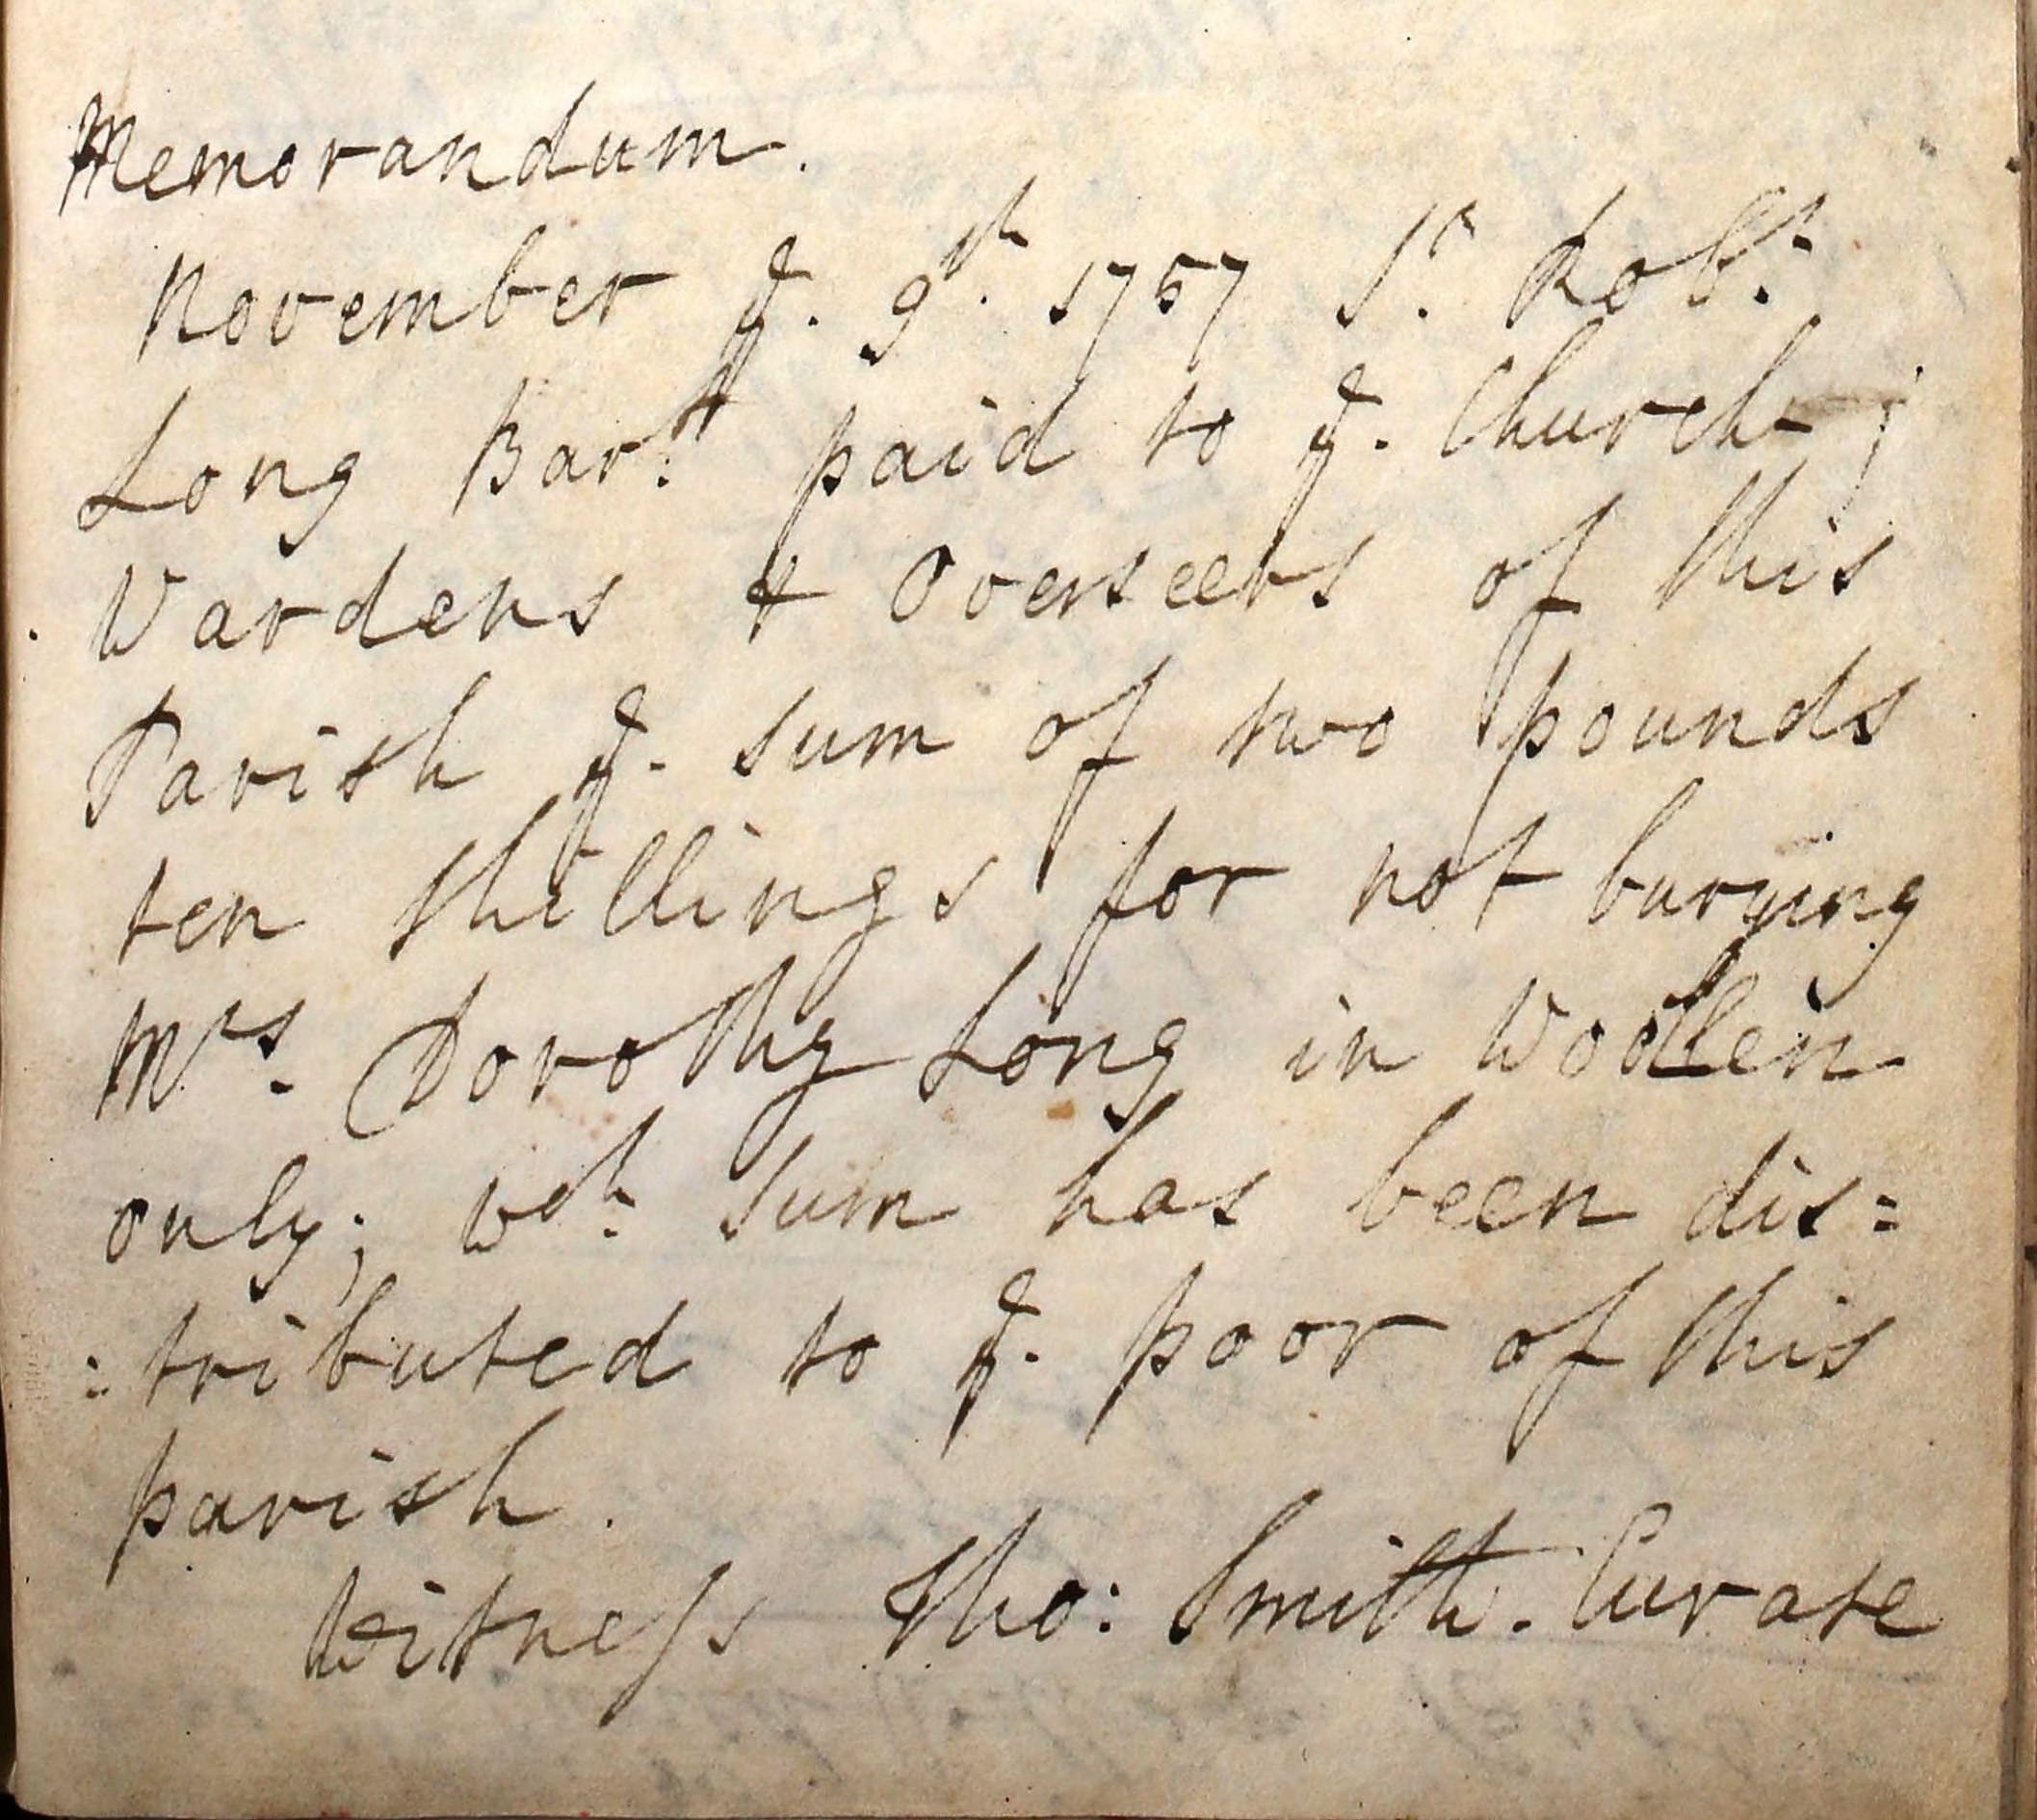 Memorandum.
November ye. 9th. 1757 Sr. Robt.
Long Bartt. paid to ye. Church;
Wardens & Overseers of this
Parish ye. sum of two pounds
ten shillings for not burying
Mrs. Dorothy Long in Woollen
only; wch. sum has been dis=
=tributed to ye. poor of this
parish.
Witness Tho: Smith. Curate